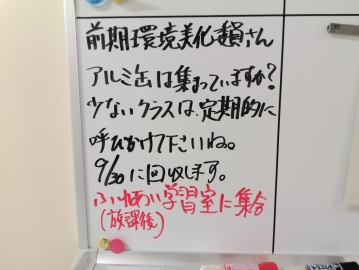 前期環境美化類さん
アルミ缶は集まっていますか?
少ないクラスは、定期的に
呼びかけて下さいね。
9/30に回収します。
ふれあい学習室に集合
(放課後)